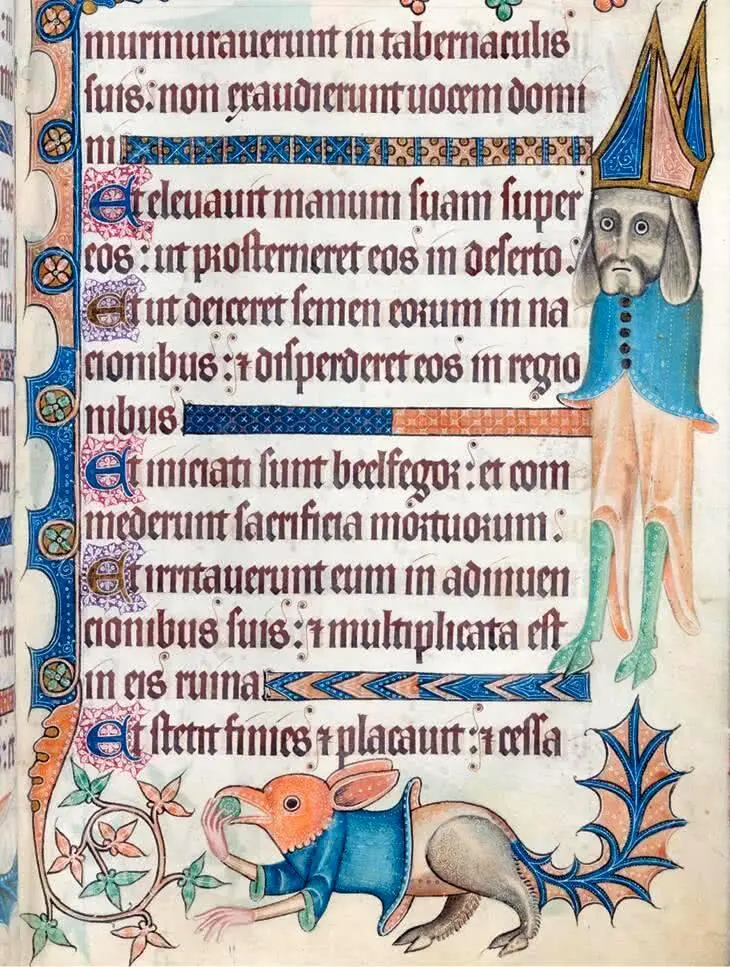 murmurauerunt in tabernaculis
suis: non exaudierunt uocem domi
ni
Et eleuauit manum suam super
eos: ut prosterneret eos in deserto.
Et ut deiceret semen eorum in na
cionibus: ⁊ disperderet eos in regio
nibus
Et iniciati sunt beelfegor: et com
mederunt sacrificia mortuorum.
Et irritauerunt eum in adinuen
cionibus suis: ⁊ multiplicata est
in eis ruina
Et stetit finies ⁊ placauit: ⁊ cessa